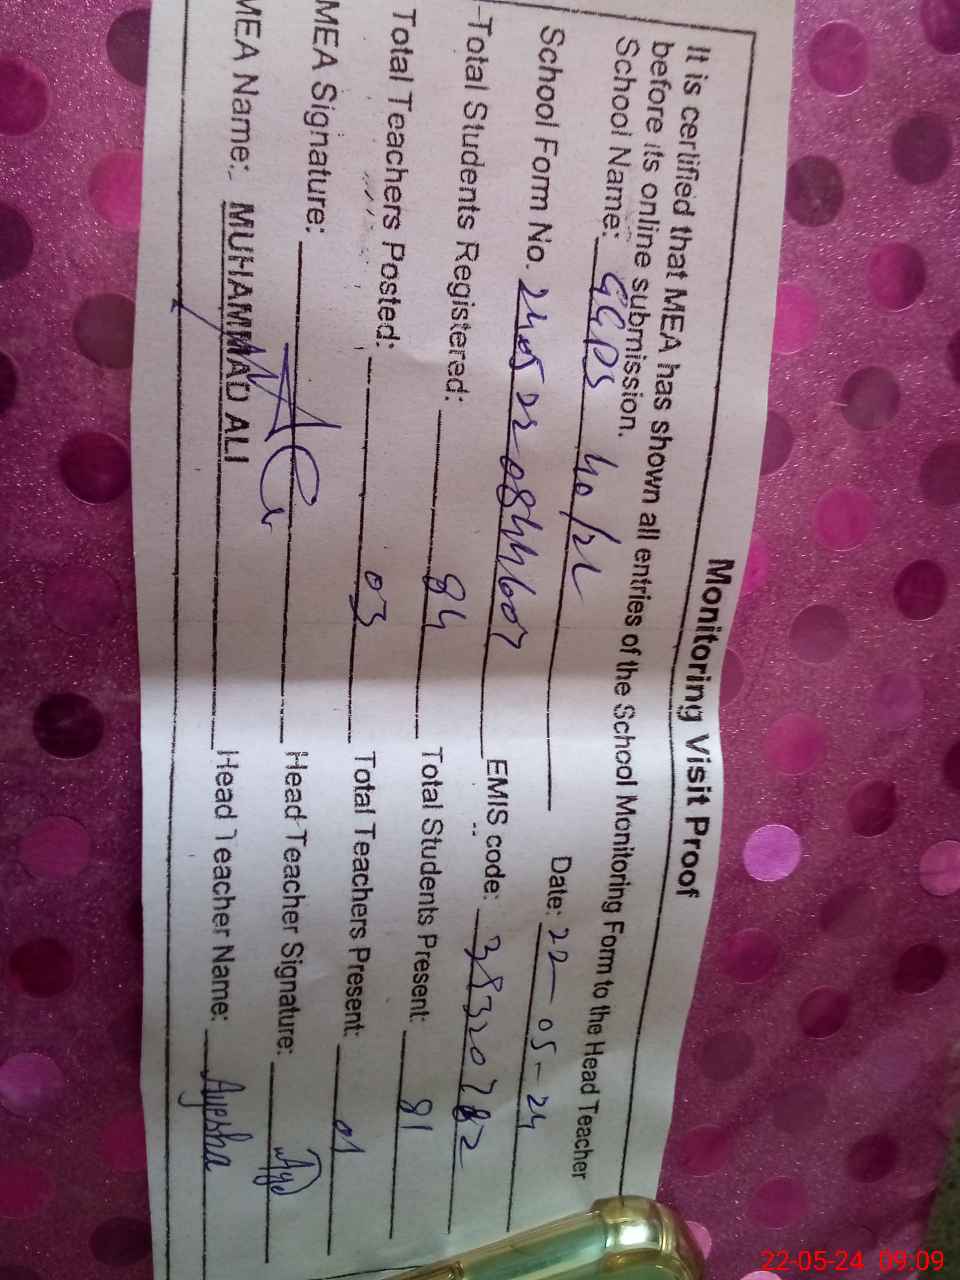 Monitoring Visit Proof
It is certified that MEA has shown all entries of the School Monitoring Form to the Head Teacher
before its online submission.
School Name: GGPS 40/2L Date: 22-05-24
School Form No. EMIS code: 38320782
Total Students Registered: 84 Total Students Present: 81
Total Teachers Posted: 03 Total Teachers Present: 01
MEA Signature: Head Teacher Signature:
MEA Name: MUHAMMAD ALI Head Teacher Name: Ayesha
22-05-24 09:09